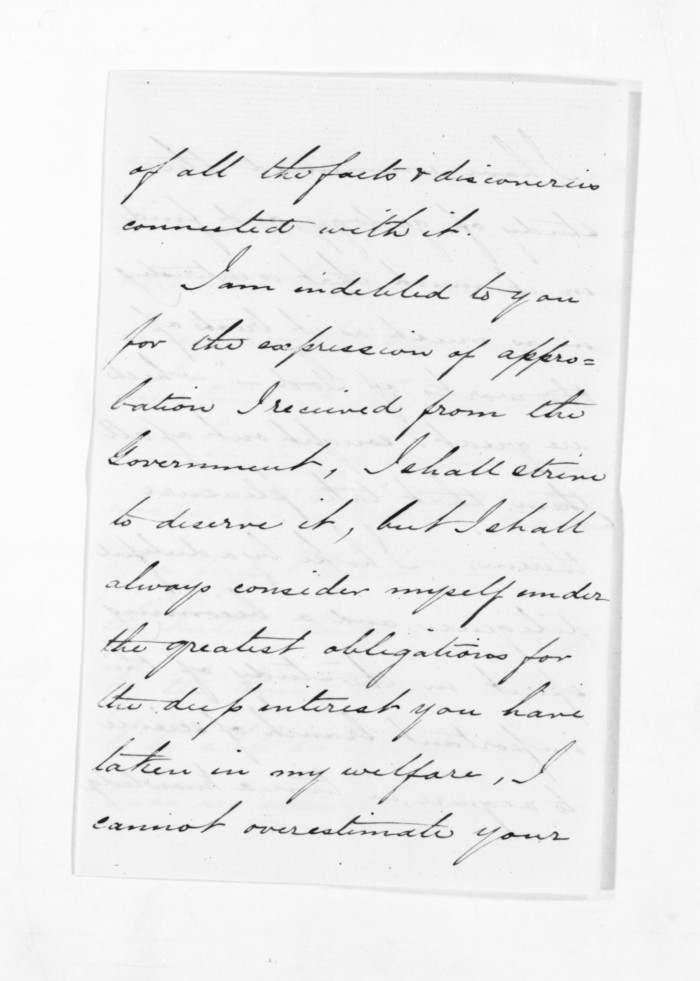 of all the facts & discoveries
connected with it.
I am indebted to you
for the expression of appro=
bation I received from the
Government, I shall strive
to deserve it, but I shall
always consider myself under
the greatest obligations for
the deep interest you have
taken in my welfare, I
cannot overestimate your